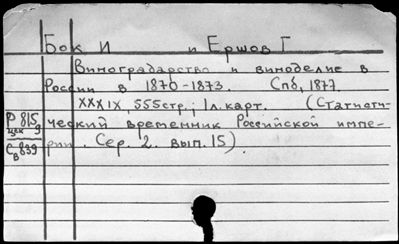 Бок И и Ершов Г
Виноградарство и виноделие в
России в 1870-1873. Спб, 1877.
XXXIX, 555стр.; 1л.карт. (Статисти-
ческий временник Российской импе-
рии. Сер. 2. вып. 15).
Р 815
Св 839